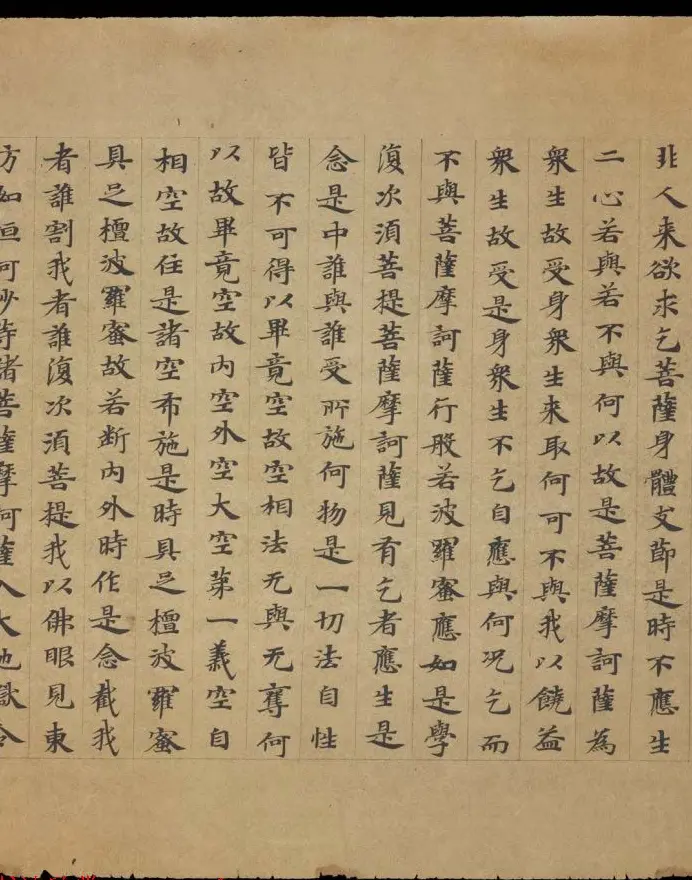 非人来欲求乞菩薩身體支節是時不應生
二心若與若不與何以故是菩薩摩訶薩為
衆生故受身衆生来取何可不與我以饒益
衆生故受是身衆生不乞自應與何况乞而
不與菩薩摩訶薩行般若波羅蜜應如是學
復次湏菩提菩薩摩訶薩見有乞者應生是
念是中誰與誰受所施何物是一切法自性
皆不可得以畢竟空故空相法无與无奪何
以故畢竟空故内空外空大空苐一義空自
相空故住是諸空布施是時具足檀波羅蜜
具足檀波羅蜜故若断内外時作是念截我
者誰割我者誰復次湏菩提我以佛眼見東
方如恒河沙等諸菩薩摩訶薩入大地獄令